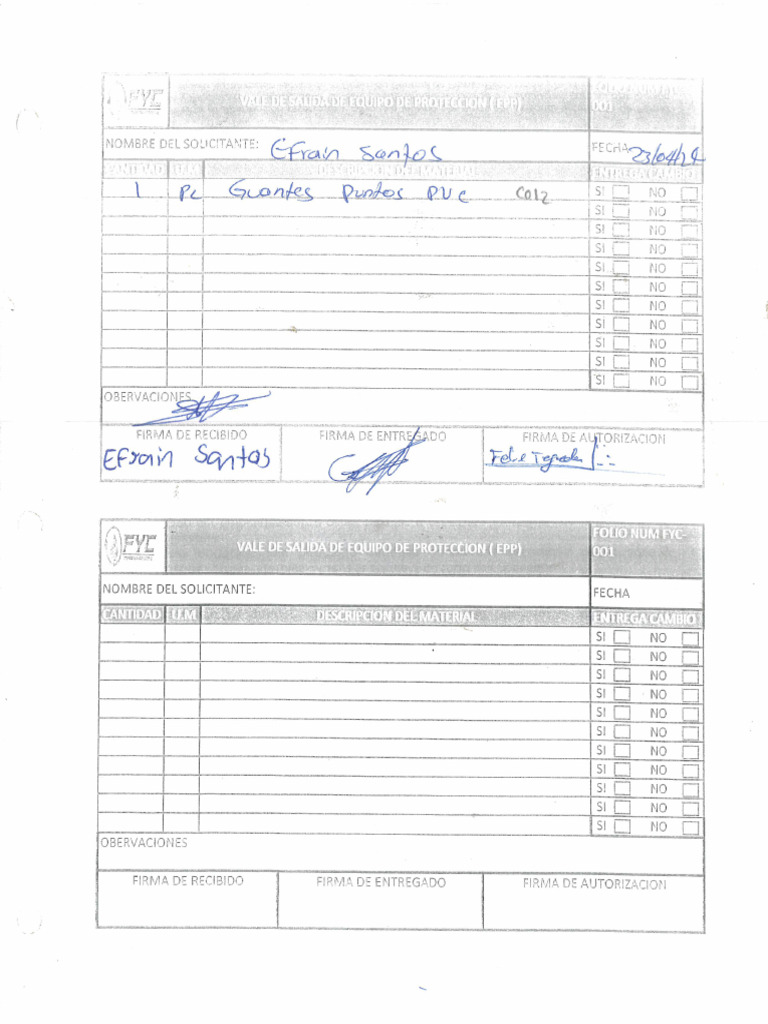 FYC
VALE DE SALIDA DE EQUIPO DE PROTECCION ( EPP)
001
NOMBRE DEL SOLICITANTE: Efrain Santos
FECHA 23/04/24
CANTIDAD U.M DESCRIPCION DEL MATERIAL ENTREGA CAMBIO
1 Pc Guantes Puntos P.V.C C012 SI NO
SI NO
SI NO
SI NO
SI NO
SI NO
SI NO
SI NO
SI NO
SI NO
SI NO
OBERVACIONES
FIRMA DE RECIBIDO FIRMA DE ENTREGADO FIRMA DE AUTORIZACION
Efrain Santos
FYC
VALE DE SALIDA DE EQUIPO DE PROTECCION ( EPP)
FOLIO NUM FYC-
001
NOMBRE DEL SOLICITANTE:
FECHA
CANTIDAD U.M DESCRIPCION DEL MATERIAL ENTREGA CAMBIO
SI NO
SI NO
SI NO
SI NO
SI NO
SI NO
SI NO
SI NO
SI NO
SI NO
SI NO
OBERVACIONES
FIRMA DE RECIBIDO FIRMA DE ENTREGADO FIRMA DE AUTORIZACION